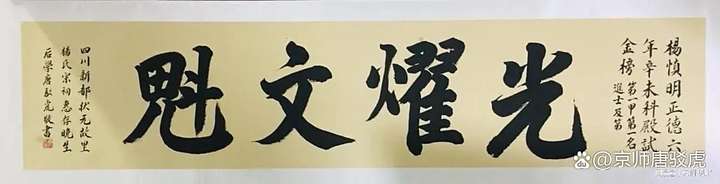 楊慎明正德六
年辛未科殿試
金榜
第一甲第一名
進士及第
光燿文魁
四川新都状元故里
楊氏宗祠惠存晚生
后學唐駿虎敬書
@京师唐骏虎